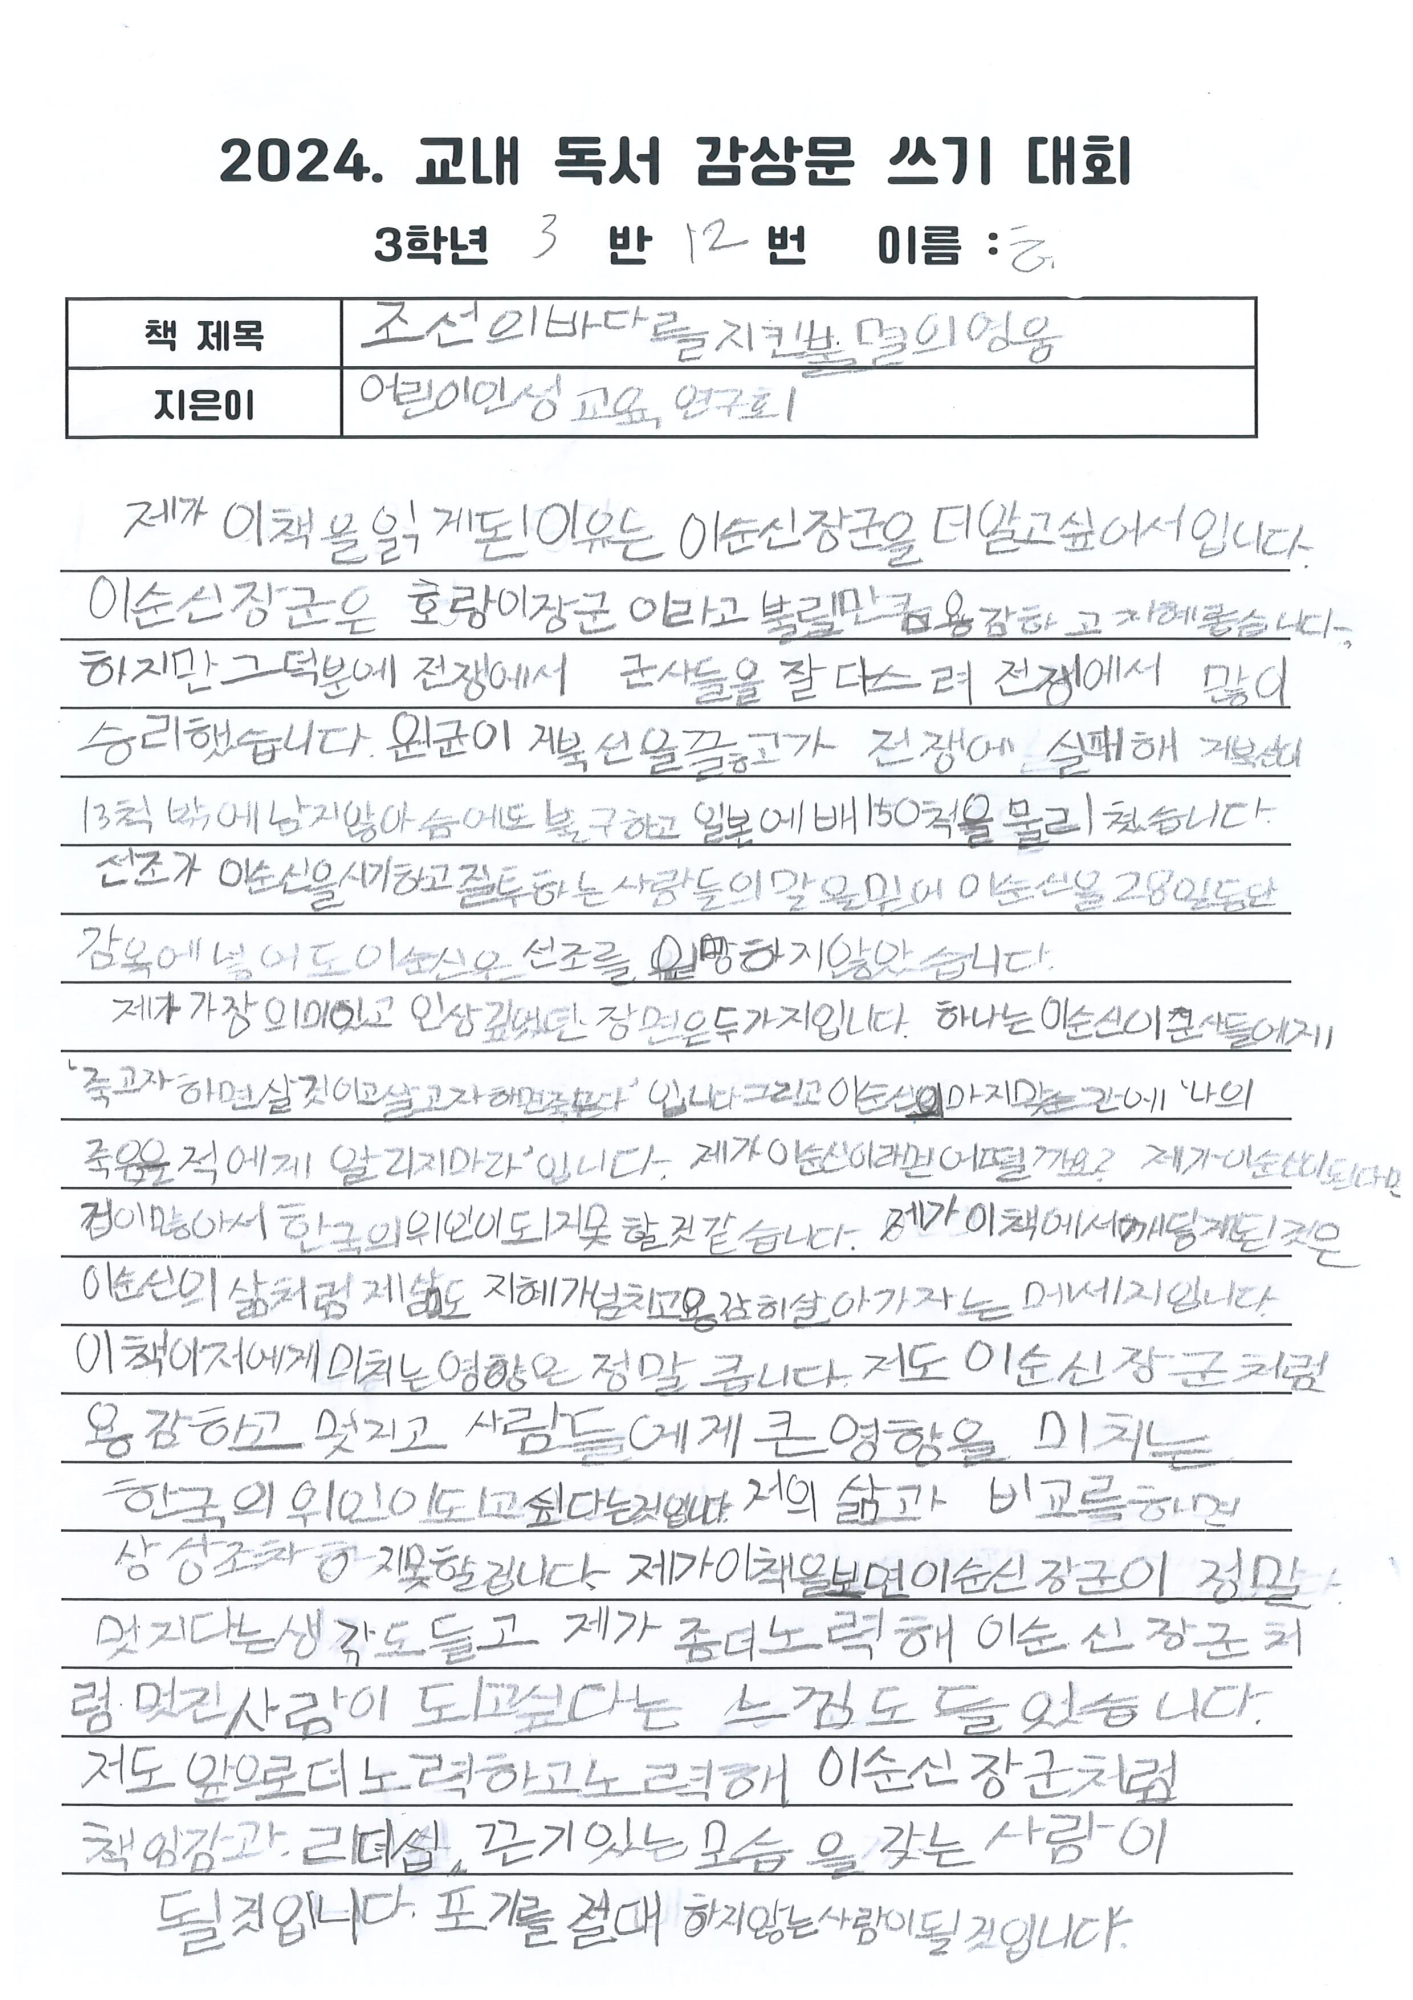 2024. 교내 독서 감상문 쓰기 대회
3학년 3 반 12 번 이름 : 허
책 제목 조선의바다를지킨불멸의영웅
지은이 어린이인성교육, 연구회
제가 이책을읽게된이유는 이순신장군을 더알고싶어서입니다.
이순신장군은 호랑이장군이라고 불릴만큼용감하고지혜롭습니다.
하지만그덕분에 전쟁에서 군사들을 잘 다스려 전쟁에서 많이
승리했습니다. 원균이 거북선을끌고가 전쟁에 실패해 거북선이
13척 밖에남지않아슴에도 불구하고 일본에배150척을물리쳤습니다.
선조가 이순신을시기하고질투하는사람들의말을믿어 이순신을 28일동안
감옥에넣어도이순신은 선조를 원망하지않았습니다.
제가가장의미있고 인상깊었던 장면은두가지입니다. 하나는이순신이군사들에게
'죽고자하면살것이고살고자하면죽는다' 입니다그리고이순신이마지막순간에 '나의
죽음을적에게 알리지마라'입니다. 제가이순신이라면어떨까요? 제가이순신이된다면
겁이많아서 한국의위인이되지못할것같습니다. 제가이책에서깨닫게된것은
이순신의 삶처럼제삶도 지혜가넘치고용감히살아가자는 메세지입니다.
이책이저에게미치는영향은 정말 큽니다. 저도 이순신장군처럼
용감하고 멋지고 사람들에게큰영향을 미치는
한국의위인이되고싶다는것입니다. 저의 삶과 비교를하면
상상조차하지못할겁니다. 제가이책을보면이순신장군이 정말
멋지다는생각도들고 제가 좀더노력해 이순신장군처
럼 멋진사람이 되고싶다는 느낌도 들었습니다.
저도앞으로더노력하고노력해 이순신장군처럼
책임감과 리더십, 끈기있는 모습을갖는 사람이
될것입니다. 포기를 절대 하지않는사람이될것입니다.